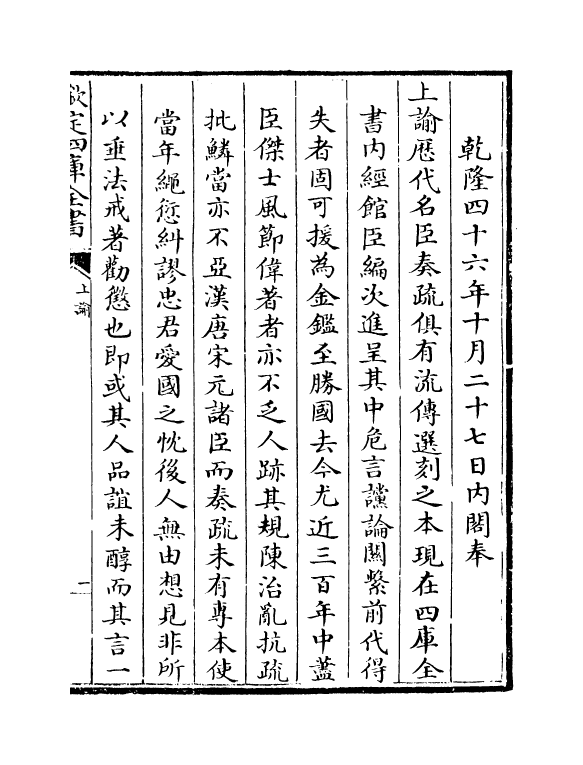 乾隆四十六年十月二十七日内閣奉
上諭歷代名臣奏疏俱有流傳選刻之本現在四庫全
書内經館臣編次進呈其中危言讜論關繫前代得
失者固可援為金鑑至勝國去今尤近三百年中藎
臣傑士風節偉著者亦不乏人跡其規陳治亂抗疏
批鱗當亦不亞漢唐宋元諸臣而奏疏未有專本使
當年繩愆糾謬忠君愛國之忱後人無由想見非所
以垂法戒著勸懲也即或其人品誼未醇而其言一
欽定四庫全書
上諭
一